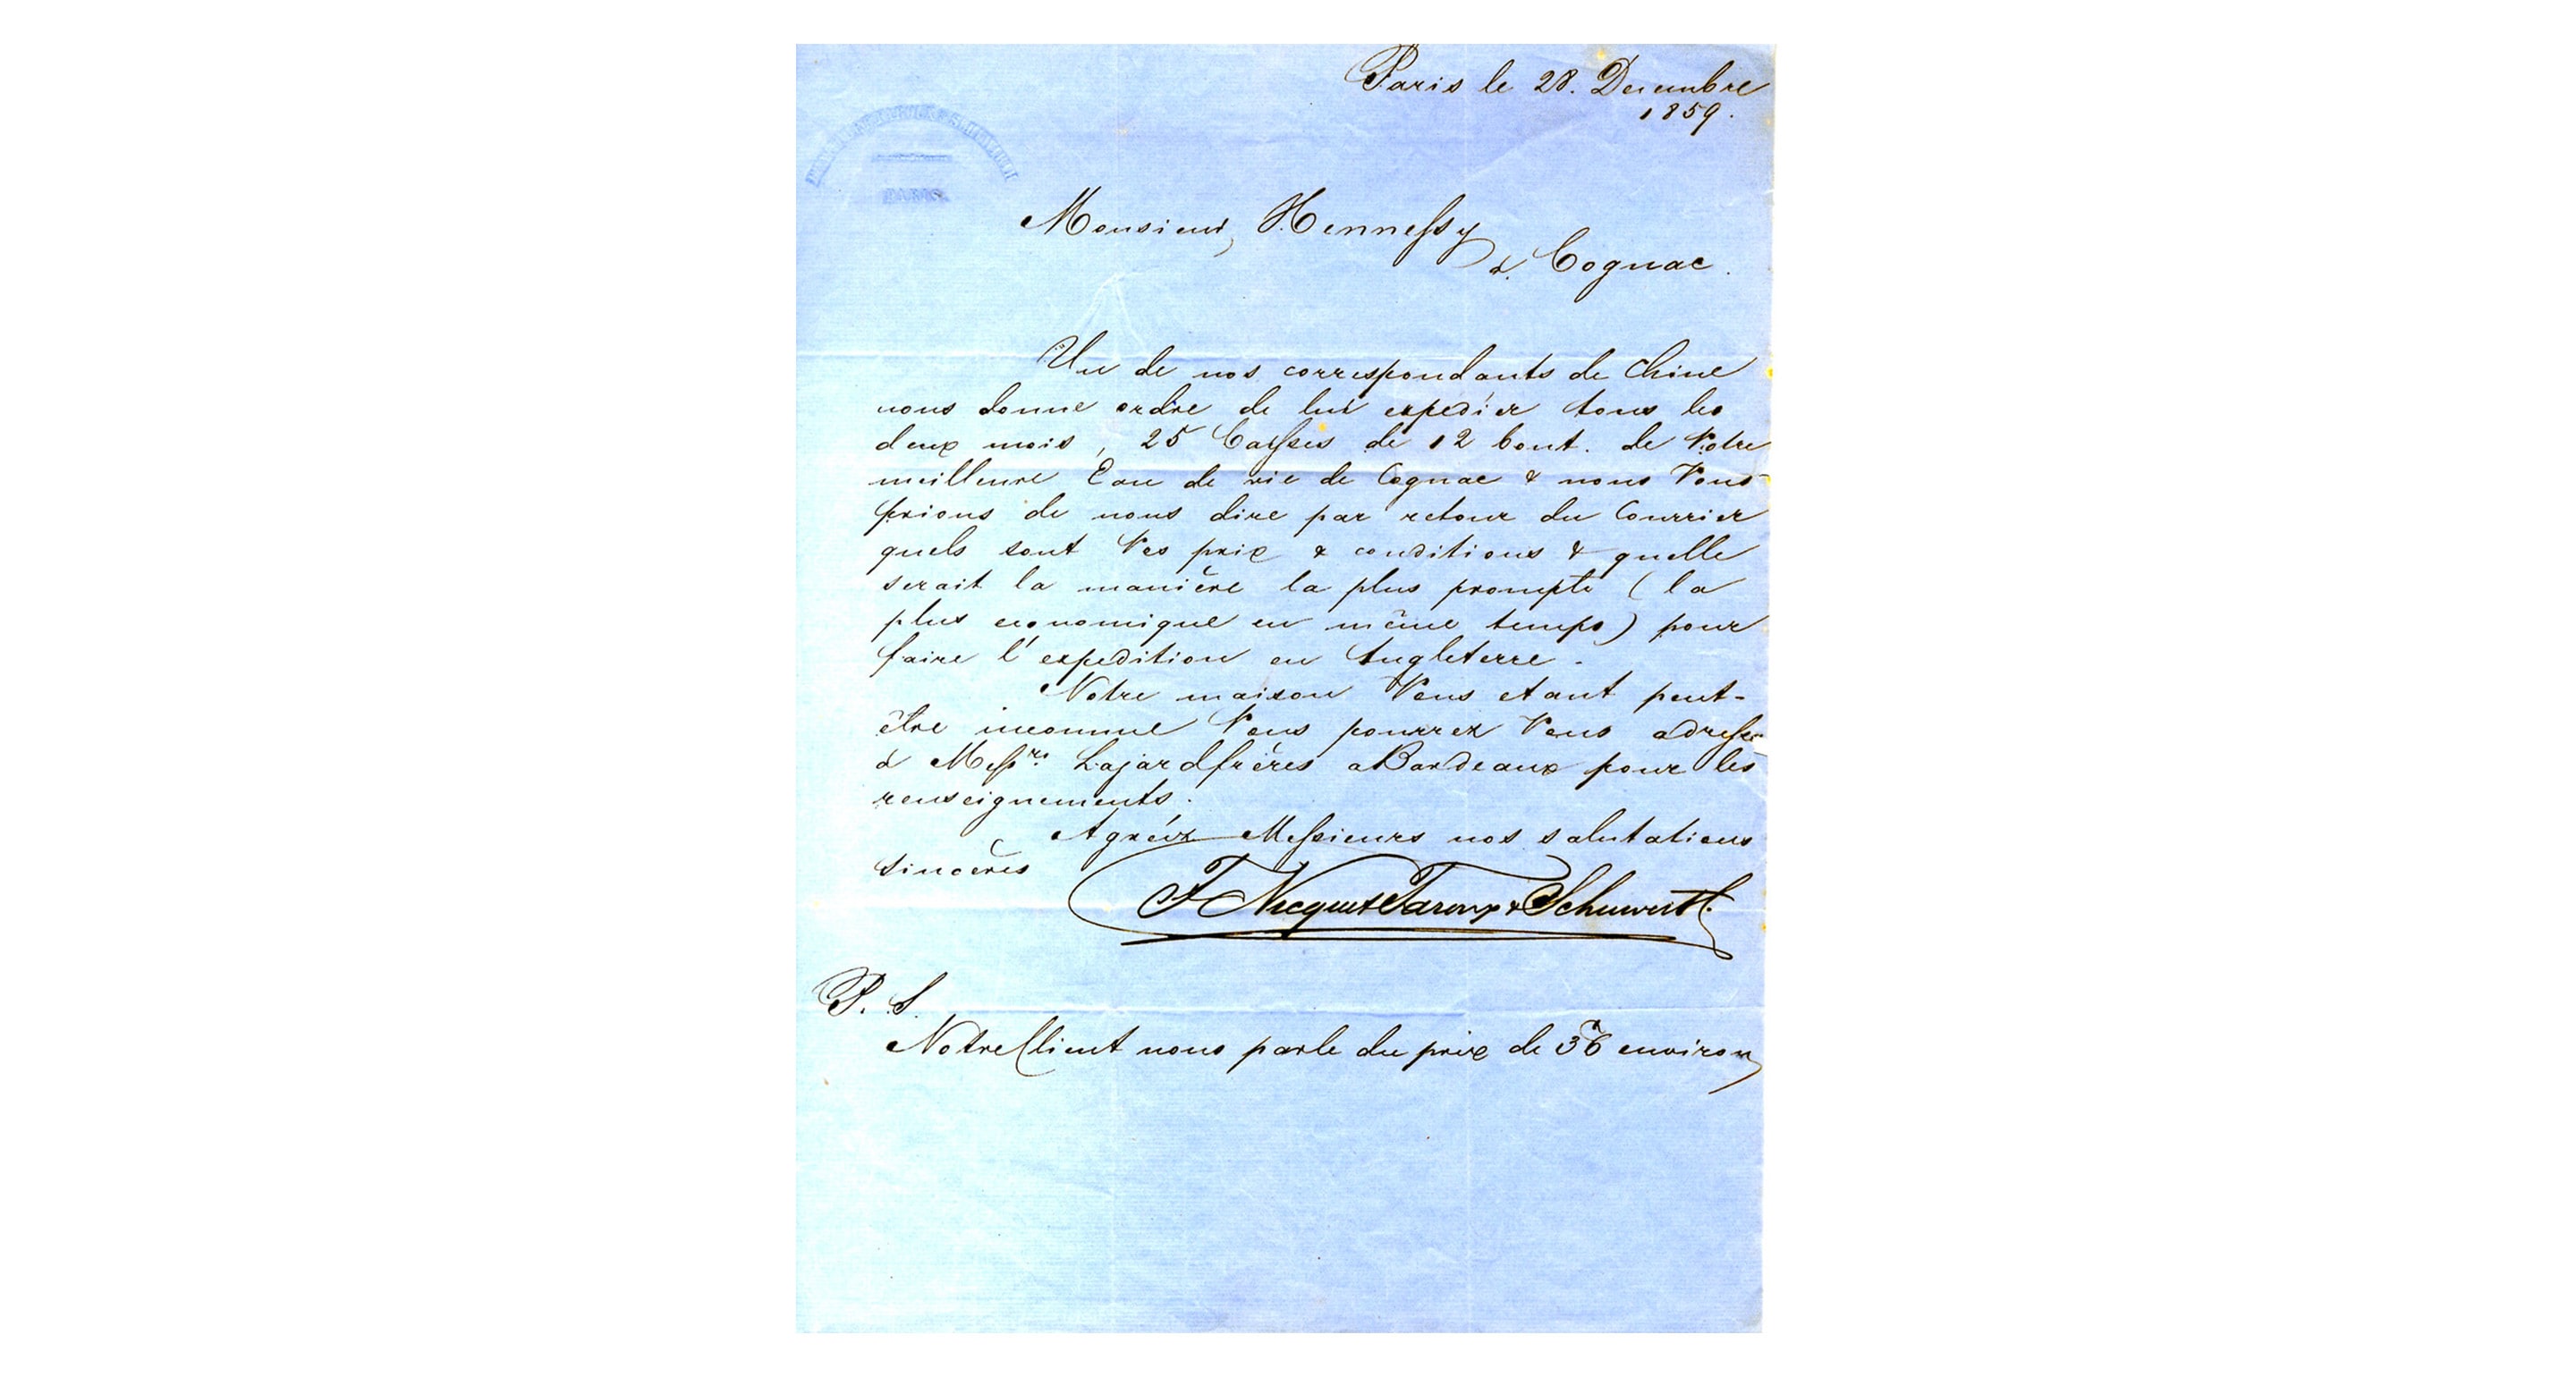 Paris le 28. Decembre
1859.
PARIS
Monsieur, Hennessy
à Cognac.
Un de nos correspondants de Chine
nous donne ordre de lui expedier tous les
deux mois, 25 Caisses de 12 bout. de Votre
meilleure Eau de vie de Cognac & nous Vous
prions de nous dire par retour du Courrier
quels sont Vos prix & conditions & quelle
serait la manière la plus prompte (la
plus economique en même temps) pour
faire l'expedition en Angleterre.
Notre maison Vous etant peut-
être inconnue Vous pourrez Vous adresser
à Messrs. Lajard frères a Bordeaux pour les
renseignements.
Agréez Messieurs nos salutations
sincères
F &
P. S.
Notre Client nous parle du prix de 36 environ